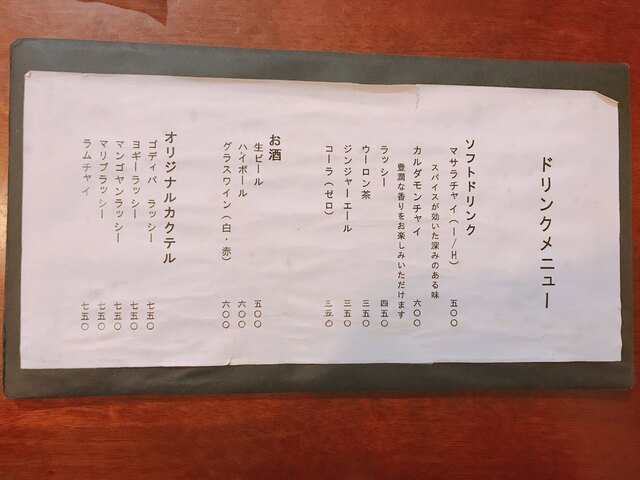 ドリンクメニュー
ソフトドリンク
マサラチャイ（I/H） 五〇〇
スパイスが効いた深みのある味
カルダモンチャイ 六〇〇
豊潤な香りをお楽しみいただけます
ラッシー 四五〇
ウーロン茶 三五〇
ジンジャーエール 三五〇
コーラ（ゼロ） 三五〇
お酒
生ビール 五〇〇
ハイボール 六〇〇
グラスワイン（白・赤） 六〇〇
オリジナルカクテル
ゴディバ ラッシー 七五〇
ヨギーラッシー 七五〇
マンゴヤンラッシー 七五〇
マリブラッシー 七五〇
ラムチャイ 七五〇